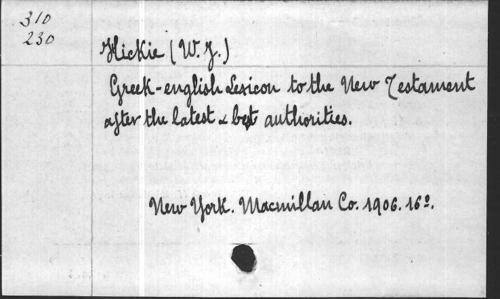 310
230
Hickie (W. J.)
Greek-english Lexicon to the New Testament
after the latest & best authorities.
New York. Macmillan Co. 1906. 16º.